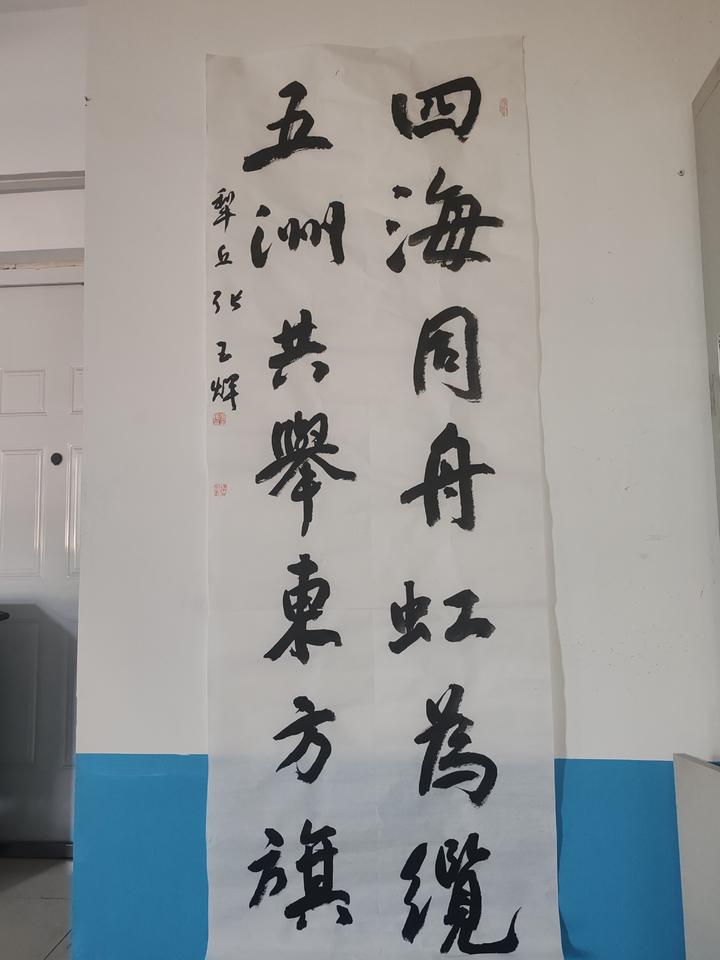 四海同舟虹為纜
五洲共舉東方旗
犁丘张玉辉